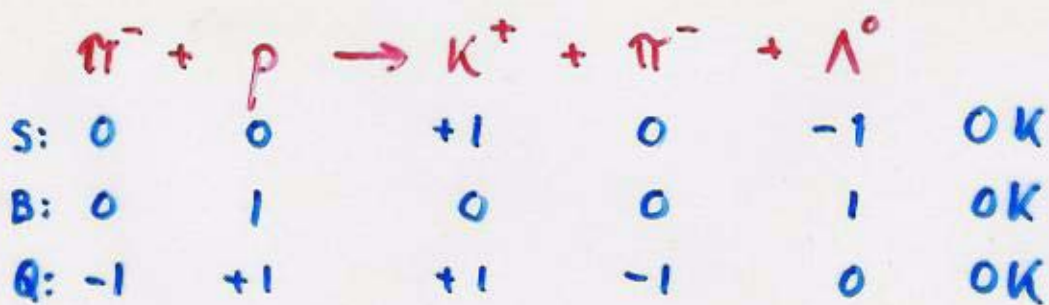 π⁻ + p → K⁺ + π⁻ + Λ⁰
S: 0 0 +1 0 -1 OK
B: 0 1 0 0 1 OK
Q: -1 +1 +1 -1 0 OK